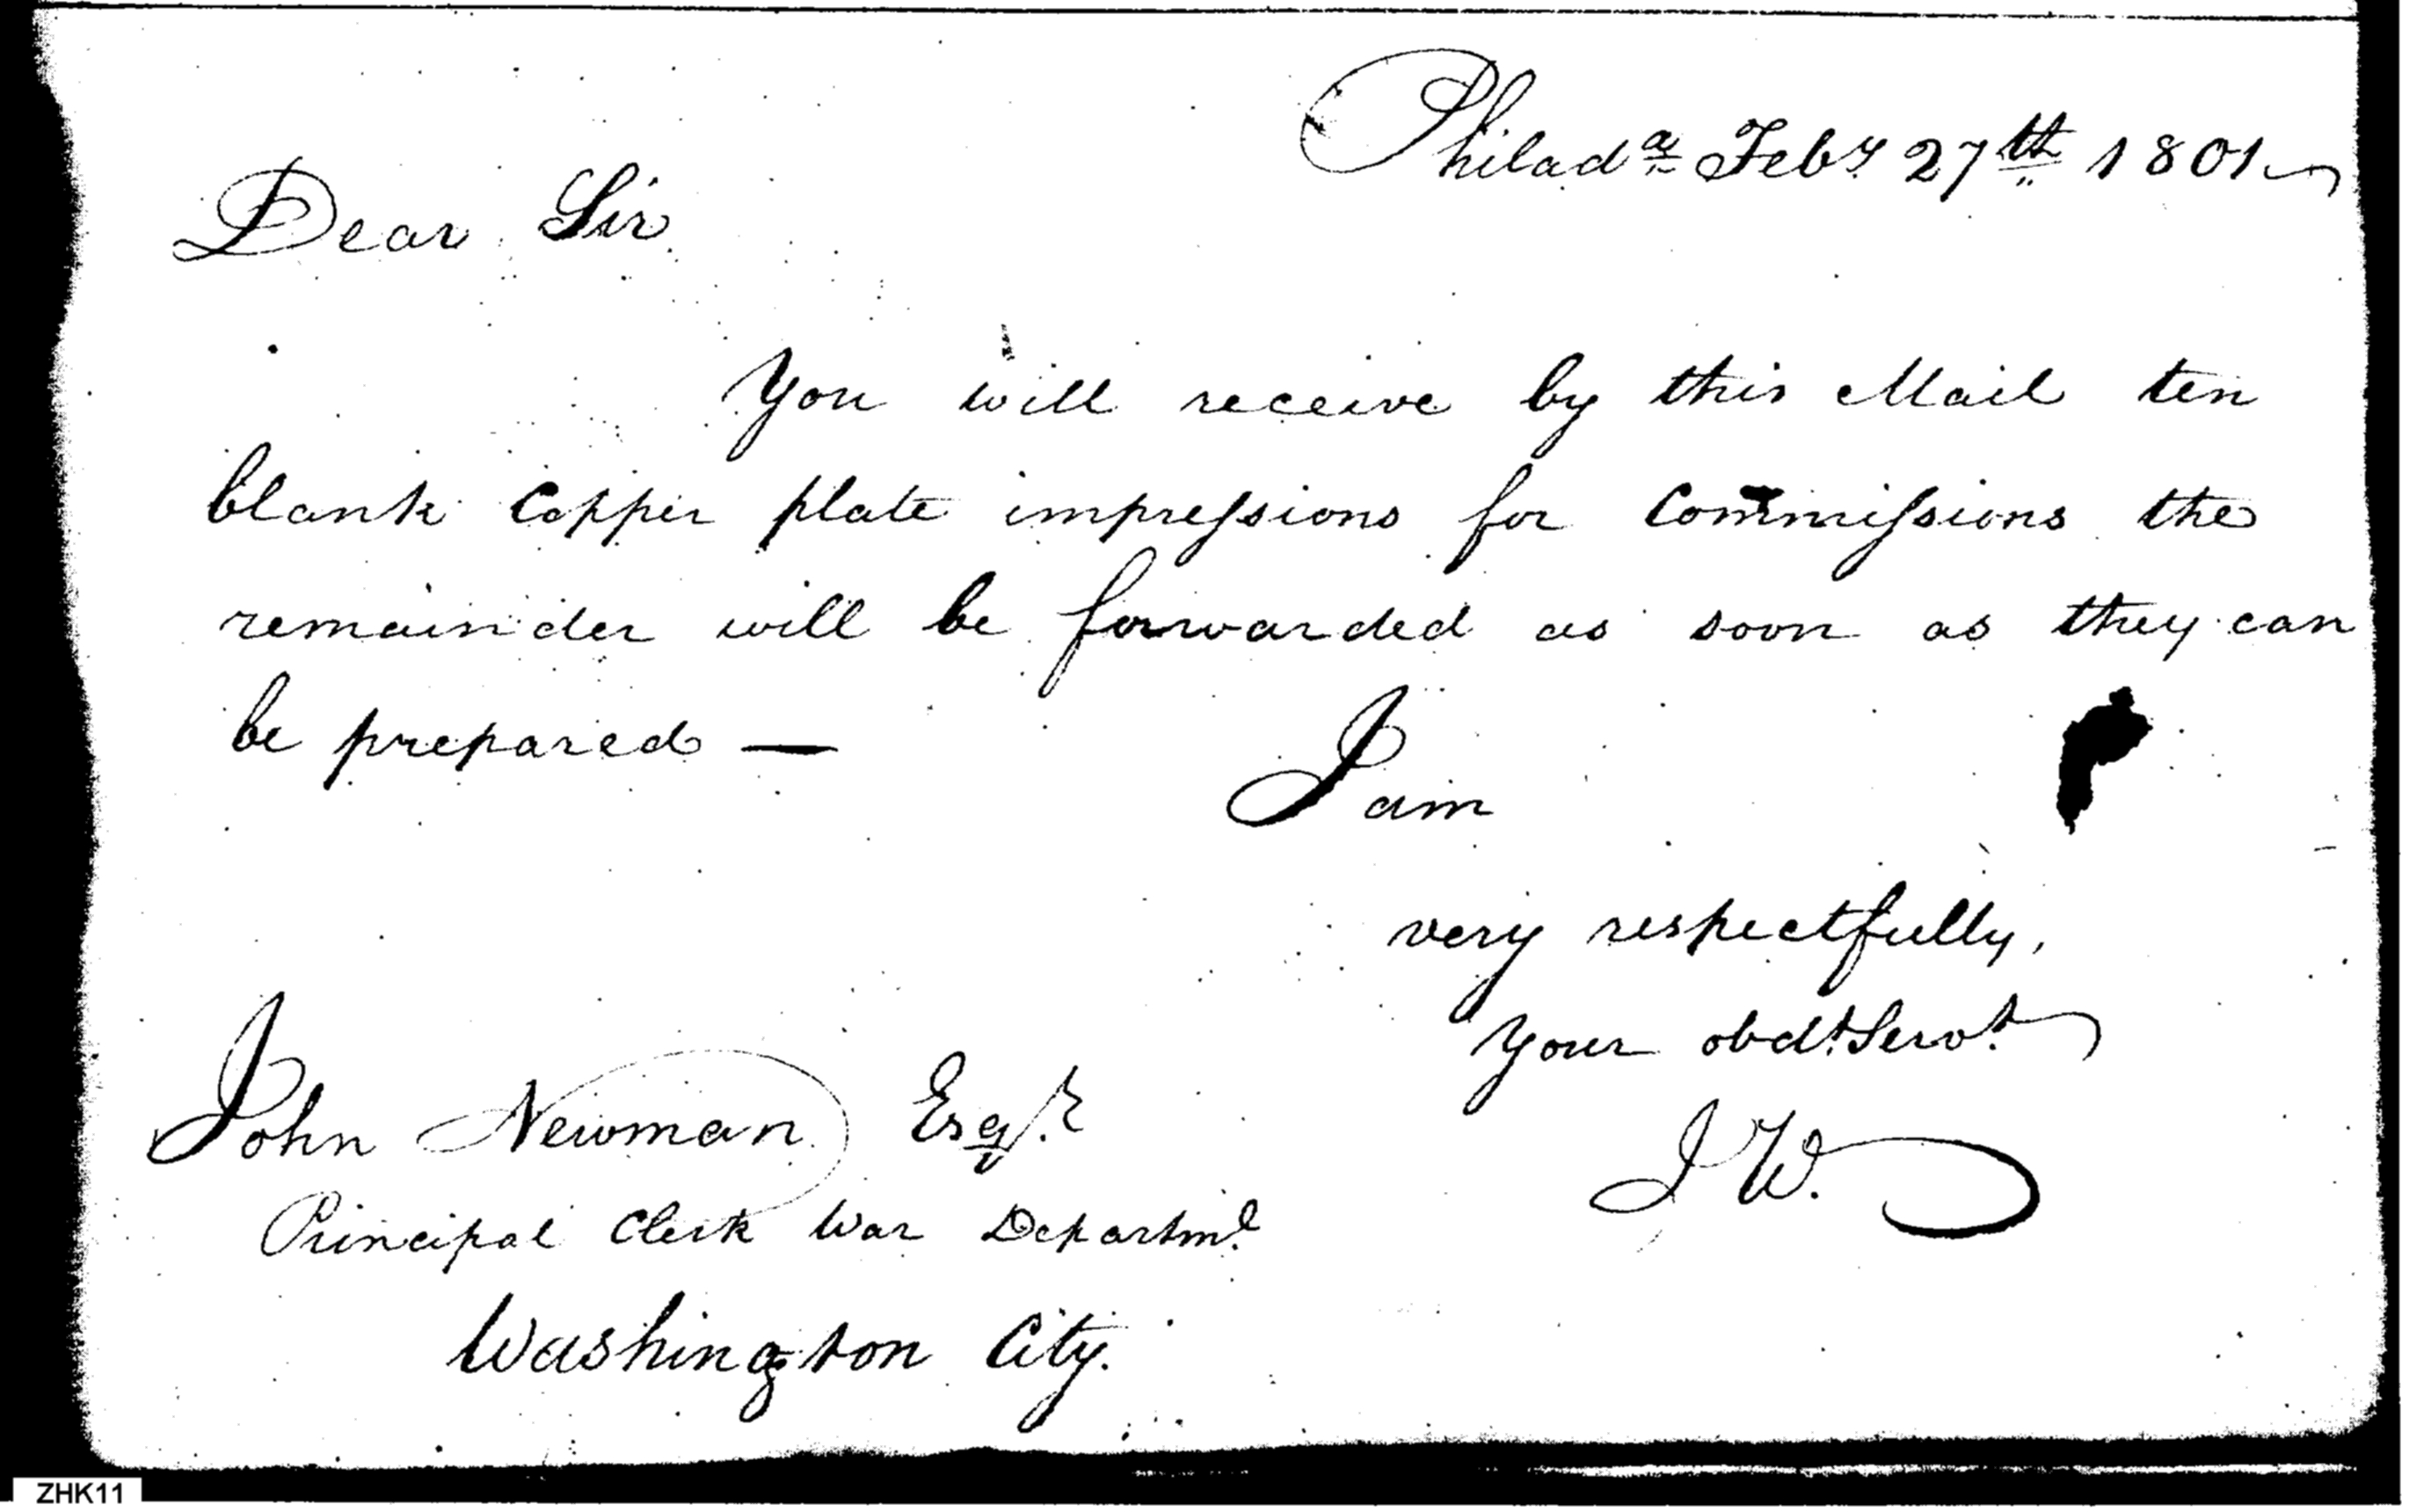 Philad.a Feby 27th 1801
Dear Sir
You will receive by this Mail ten
blank Copper plate impressions for Commissions the
remainder will be forwarded as soon as they can
be prepared —
I am
very respectfully,
your obdt. Servt.
J W.
John Newman Esqr.
Principal Clerk War Departmt.
Washington City.
ZHK11